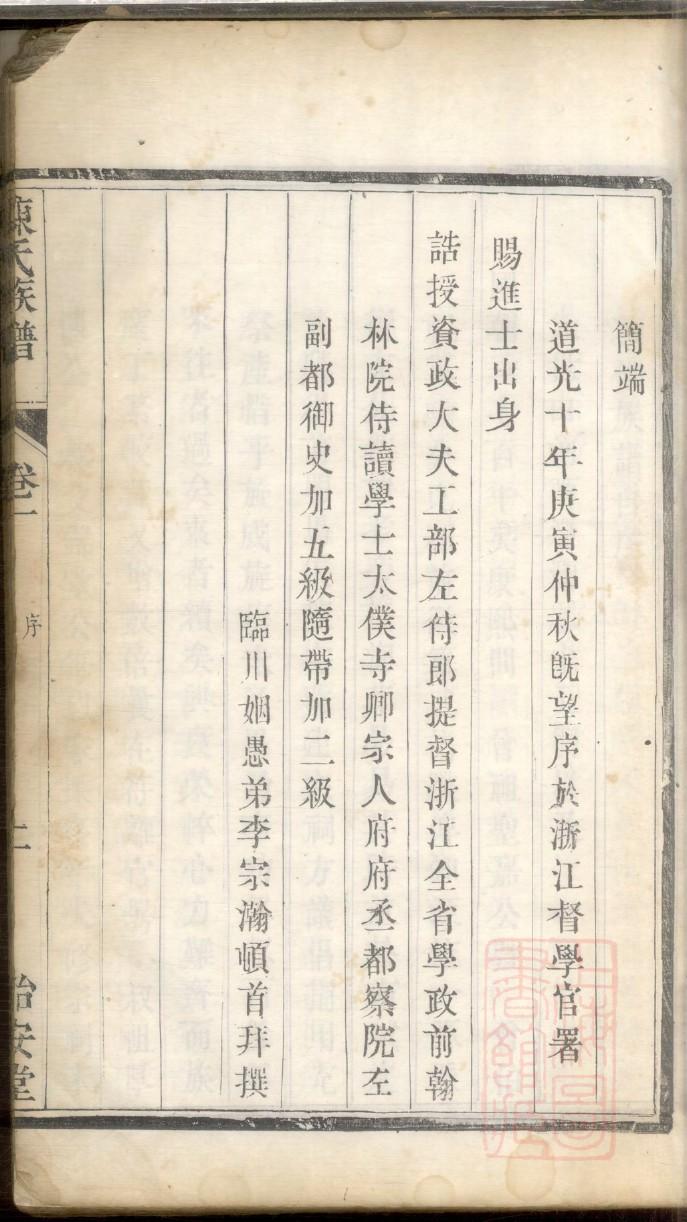 簡端
道光十年庚寅仲秋既望序於浙江督學官署
賜進士出身
誥授資政大夫工部左侍郎提督浙江全省學政前翰
林院侍讀學士太僕寺卿宗人府府丞都察院左
副都御史加五級隨帶加二級
臨川姻愚弟李宗瀚頓首拜撰
陳氏族譜
卷一
序
二
怡安堂
上海圖書館藏